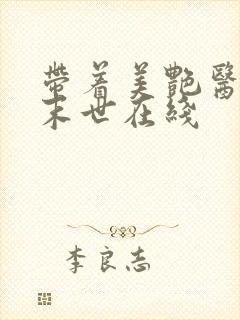 带着美艳醫
末世在线
李良志